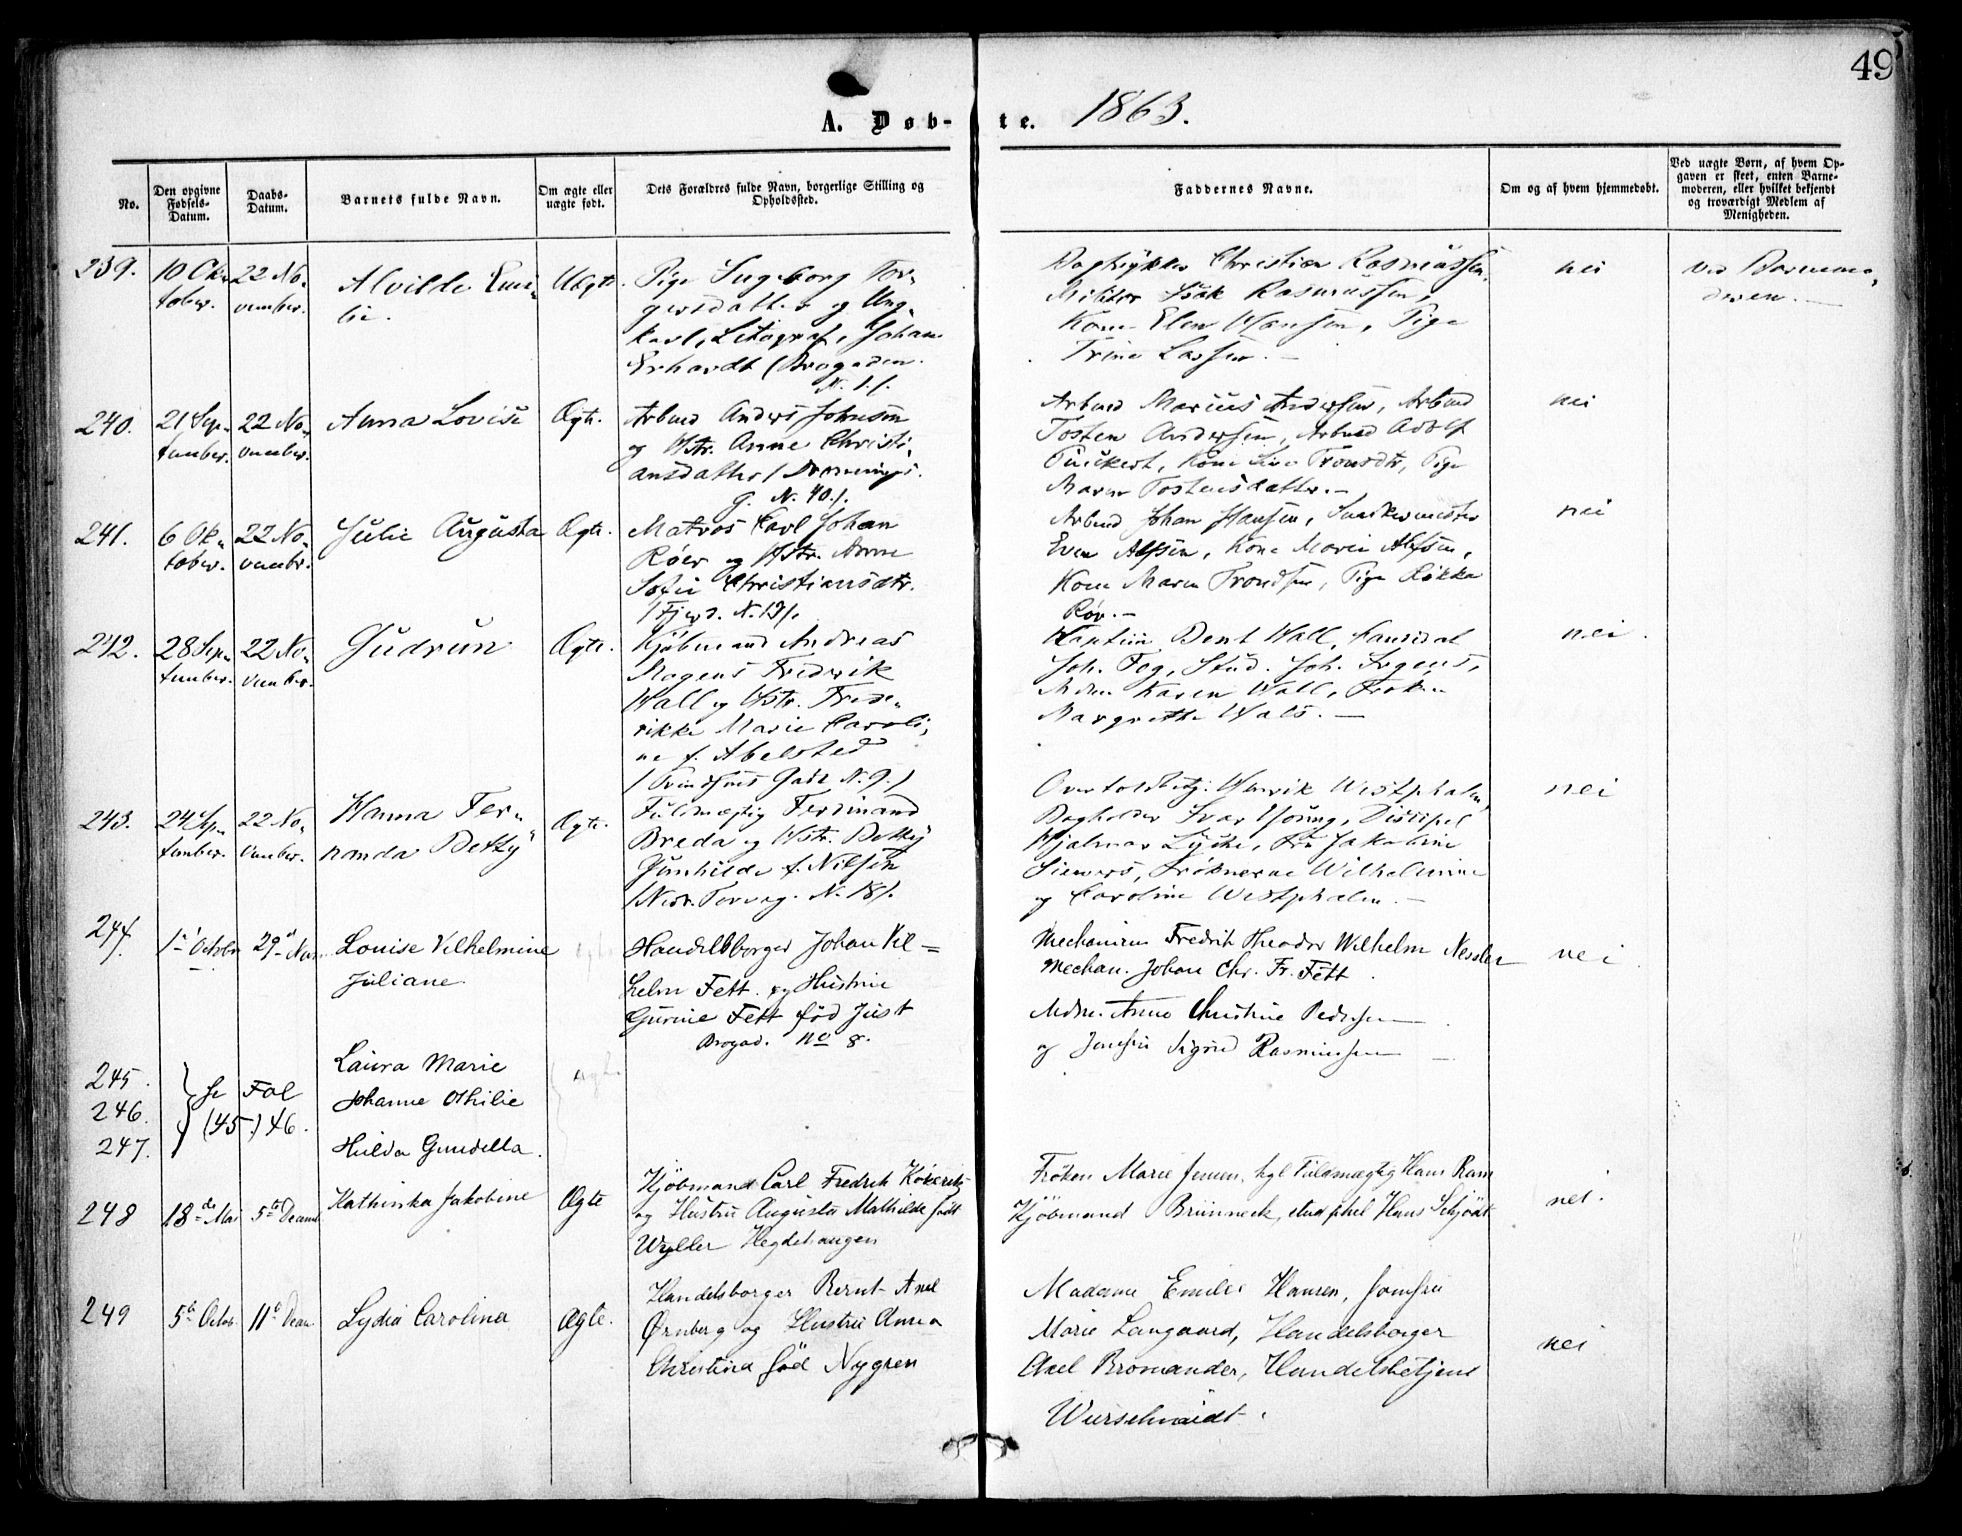 49
A. Døb- te. 1863.
No.
Den opgivne Fødsels-Datum.
Daabs-Datum.
Barnets fulde Navn.
Om ægte eller uægte født.
Dets Forældres fulde Navn, borgerlige Stilling og Opholdssted.
Faddernes Navne.
Om og af hvem hjemmedøbt.
Ved uægte Børn, af hvem Opgaven er skeet, enten Barnemoderen, eller hvilket bekjendt og troværdigt Medlem af Menigheden.
239. 10 Oktober. 22 November. Alvilde Emilie. Uægte
Pige Ingeborg Tor-
gersdatter og Ung-
karl, Litograf, Johan
Erhardt (Brogaden
N. 1.).
Christian Rasmussen,
Isak Rasmussen,
Kone Elen Hansen, Pige
Trine Larsen. —
nei
ved Barnemoderen. —
240. 21 September. 22 November. Anna Lovise Ægte.
Arbmd Anders Johnsen
og Hstr. Anne Christi-
ansdatter /
g. N. 40/.
Arbmd Marius Andersen, Arbmd
Tosten Andersen, Arbmd Adolf
Kone Trondsdtr, Pige
Maren Tostensdatter. —
nei
241. 6 Oktober. 22 November. Julie Augusta Ægte.
Matros Carl Johan
Røer og Hstr. Anne
Sofie Christiansdtr.
/Fjerd. N. 19/.
Arbmd Johan Hansen, Snekkermester
Even Alfsen, Kone Maren Alfsen,
Kone Maren Trondsen, Pige Rikka
Røer. —
nei
242. 28 September. 22 November. Gudrun Ægte.
Kjøbmand Andreas
Mogens Fredrik
Wall og Hstr. Frede-
rikke Marie Caroli-
ne f. Abelsted
Gade N. 9.)
Kaptein Bent Wall, Kandidat
Joh. Fog, Stud. Joh. Irgens,
Mdm Karen Wall, Frøken
Margrethe Wals. —
nei.
243. 24 September. 22 November. Hanna Fernanda Betty Ægte.
Fuldmægtig Ferdinand
Breda og Hstr. Betty
Gunhilde f. Nilsen
/Nedr. Torveg. N. 18/.
Overtoldbetj. Henrik Westphalen,
Bogholder Ivar Young, Discipel
Hjalmar Lyche, Fru Jakobine
Siewers, Frøknerne Wilhelmine
og Caroline Westphalen. —
nei
244. 1ste Octobr 29de Nov. Louise Vilhelmine Juliane. Ægte
Handelsborger Johan Vil=
helm Fett og Hustrue
Gurine Fett fød Just
Brogad. No 8.
Mechanicus Fredrik Theodor Wilhelm Nessler
Mechan. Johan Chr. Fr. Fett.
Mdm. Anne Christine Pedersen
og Jomfru Sigrid Rasmussen —
nei.
245. Laura Marie
246. Johanne Othilie
247. Hulda Gundella.
Se Fol (45) 46.
Ægte
248 18de Mai 5te Decemb Kathinka Jakobine Ægte
Kjöbmand Carl Fredrik
og Hustru Augusta Mathilde født
Wyller Hegdehaugen
Frøken Marie Jensen, kgl Fuldmægtig Hans Ram
Kjöbmand Brünneck, stud phil Hans Schjödt
nei.
249 5te Octob. 11te Decem. Lydia Carolina Ægte.
Handelsborger Bernt Axel
Ørnberg og Hustru Anna
Christina fød Nygren
Madame Emilie Hansen, Jomfru
Marie Langaard, Handelsborger
Axel Bromander, Handelsbetjent
Wurschmidt.
nei